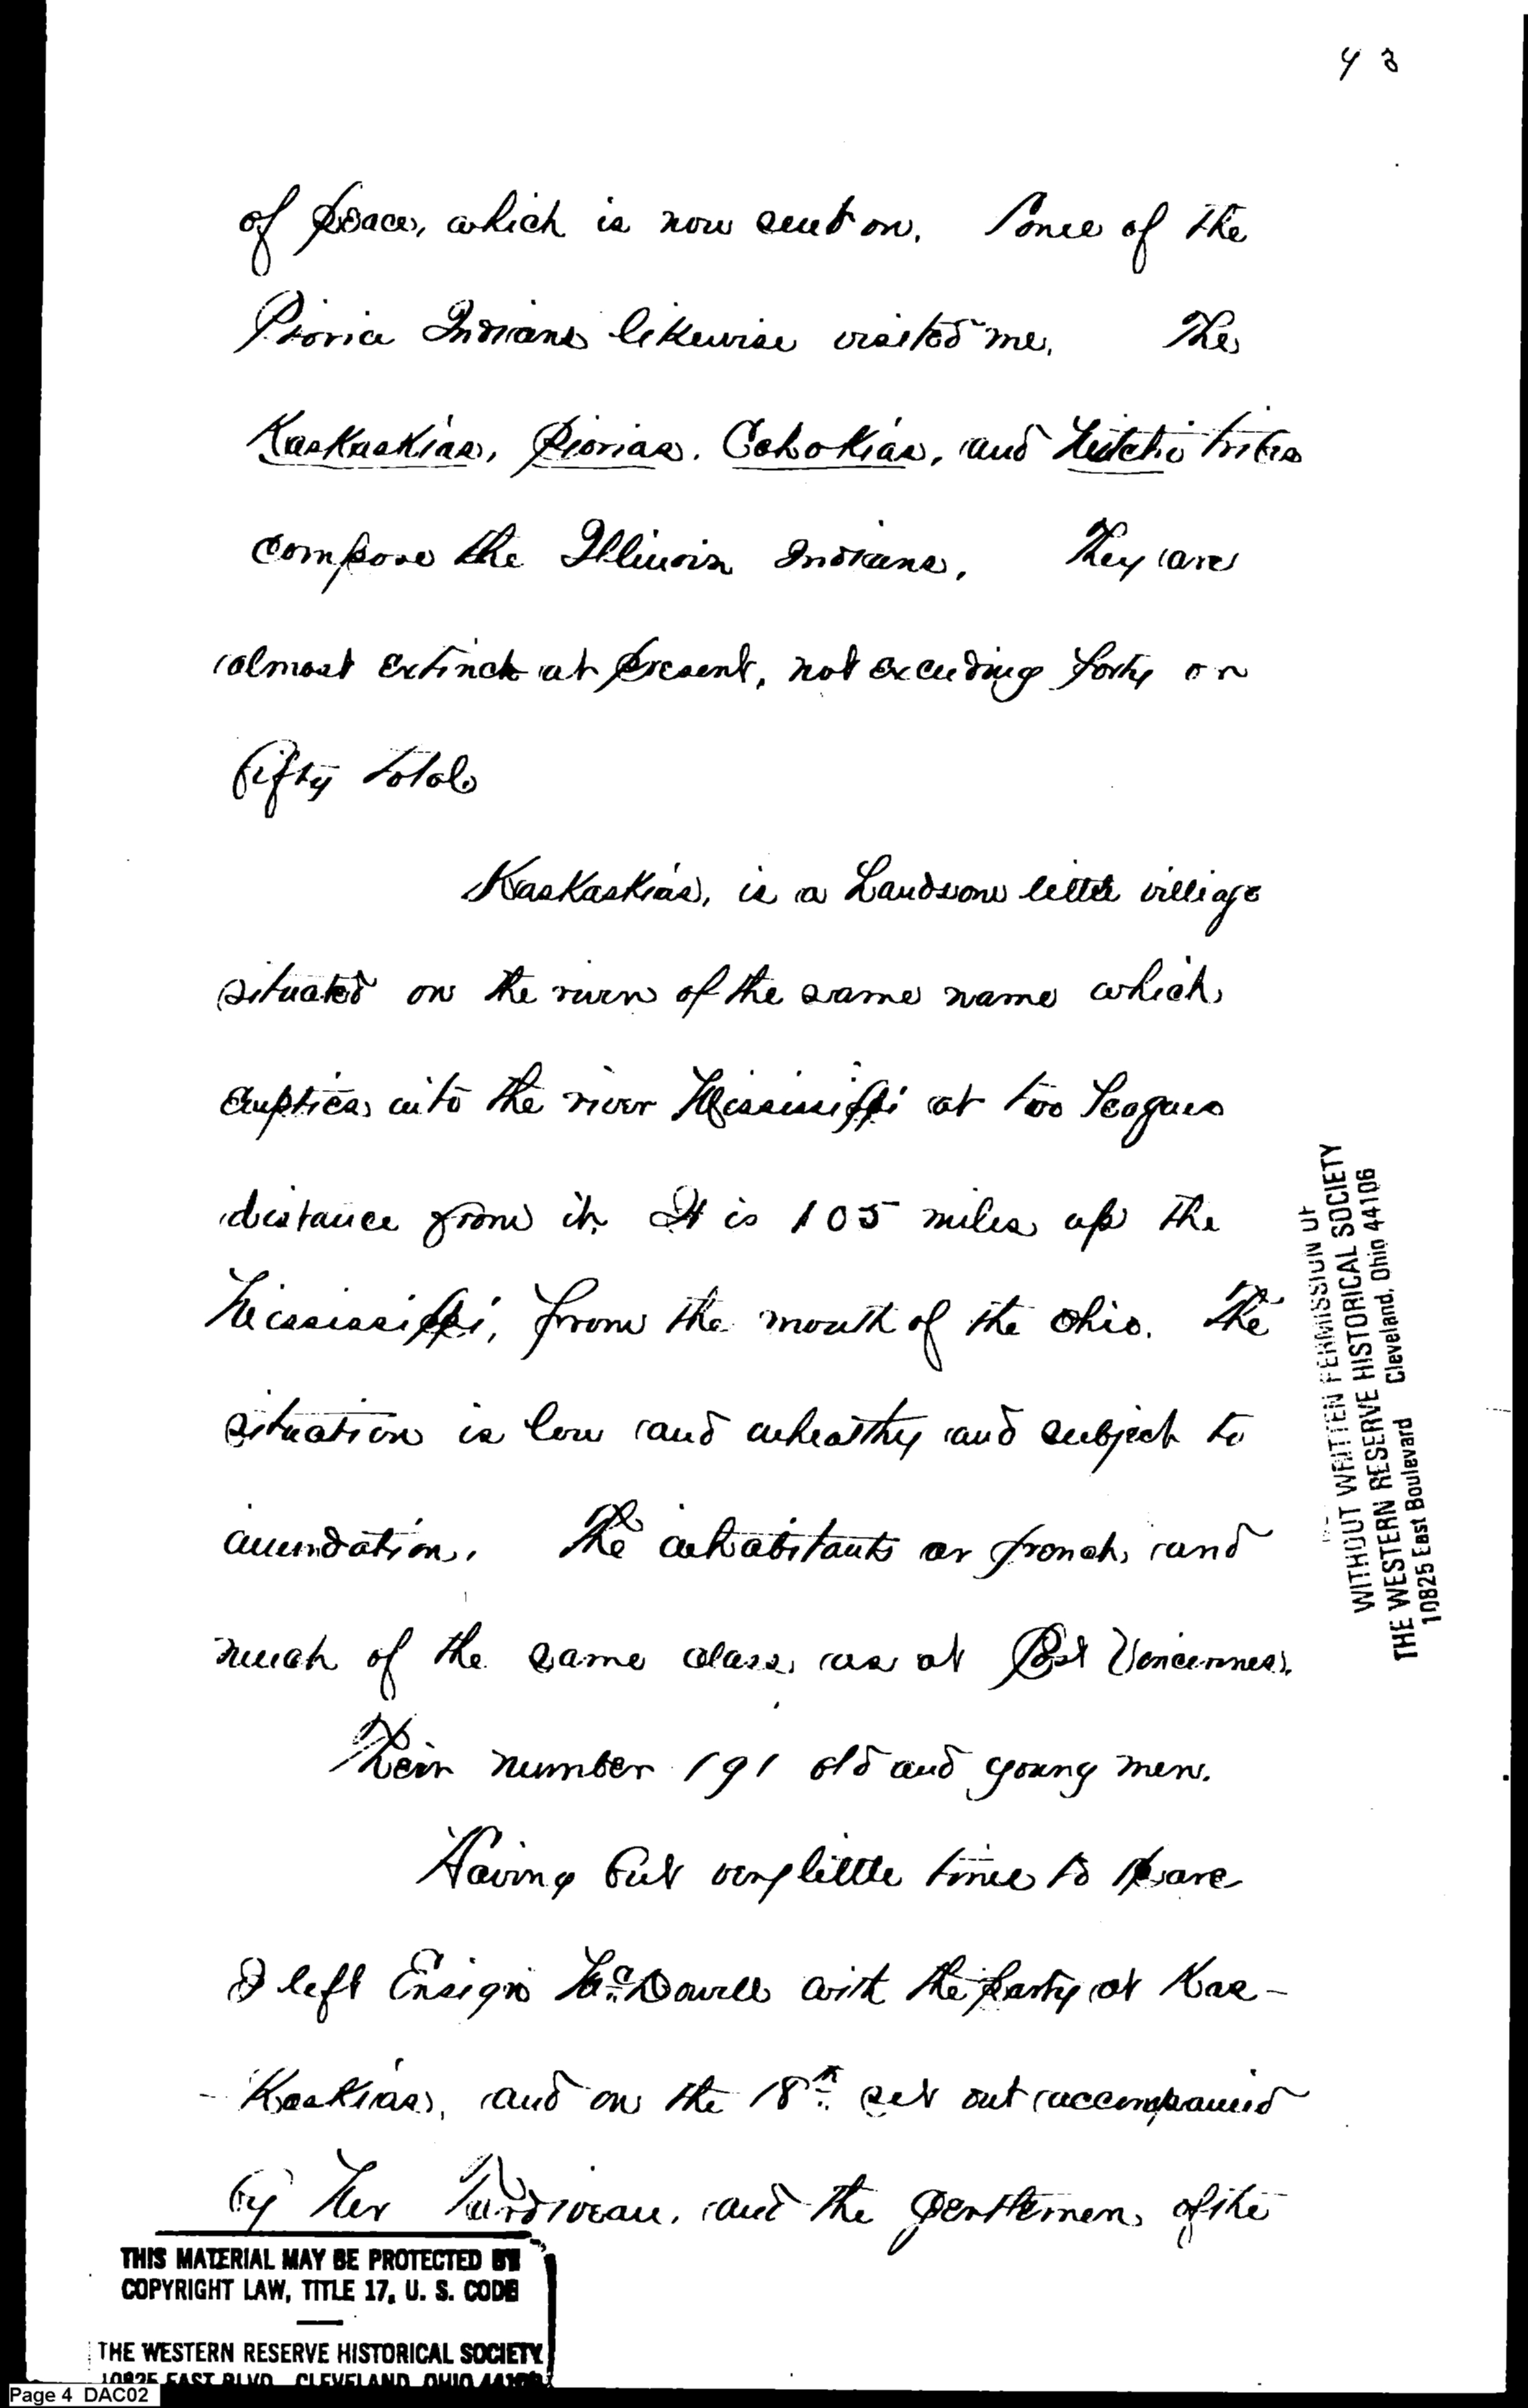 43
of peace, which is now sent on. Some of the
Pioria Indians likewise visited me. The
Kaskaskias, Piorias, Cohokias, and Mitchi tribes
compose the Illinois Indians. They are
almost extinct at present, not exceeding forty or
fifty total.
Kaskaskias, is a handsome little village
situated on the river of the same name which
empties into the river Mississippi at two leagues
distance from it. It is 105 miles up the
Mississippi, from the mouth of the Ohio. The
situation is low and unhealthy and subject to
inundation. The inhabitants are french and
much of the same class as at Post Vincennes.
Their number 191 old and young men.
Having but very little time to spare
I left Ensign McDowell with the party at Kas-
-Kaskias, and on the 18th set out accompanied
by Mr Tardiveau, and the gentlemen of the
WITHOUT WRITTEN PERMISSION OF
THE WESTERN RESERVE HISTORICAL SOCIETY
10825 East Boulevard Cleveland, Ohio 44106
THIS MATERIAL MAY BE PROTECTED BY
COPYRIGHT LAW, TITLE 17, U. S. CODE
THE WESTERN RESERVE HISTORICAL SOCIETY
10825 EAST BLVD., CLEVELAND, OHIO 44106
Page 4 DAC02